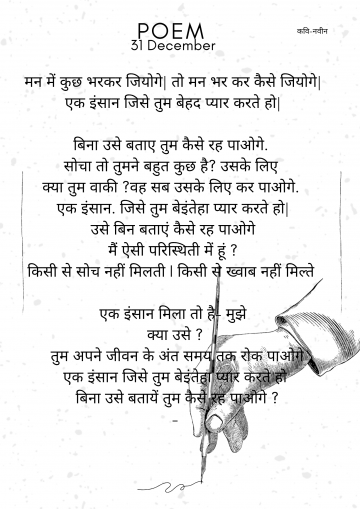 POEM
31 December
कवि-नवीन
मन में कुछ भरकर जियोगे| तो मन भर कर कैसे जियोगे|
एक इंसान जिसे तुम बेहद प्यार करते हो|
बिना उसे बताए तुम कैसे रह पाओगे.
सोचा तो तुमने बहुत कुछ है? उसके लिए
क्या तुम वाकी ?वह सब उसके लिए कर पाओगे.
एक इंसान. जिसे तुम बेइंतेहा प्यार करते हो|
उसे बिन बताएं कैसे रह पाओगे
मैं ऐसी परिस्थिती में हूं ?
किसी से सोच नहीं मिलती | किसी से ख्वाब नहीं मिल्ते
एक इंसान मिला तो है- मुझे
क्या उसे ?
तुम अपने जीवन के अंत समय तक रोक पाओगे
एक इंसान जिसे तुम बेइंतेहा प्यार करते हो
बिना उसे बतायें तुम कैसे रह पाओगे ?
_